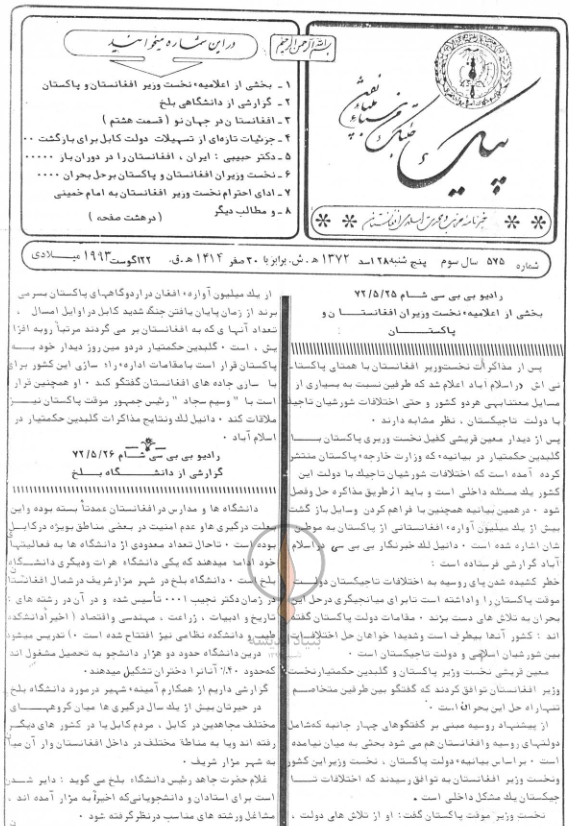 بسم الله الرحمن الرحیم
در این شماره میخوانید
۱ - بخشی از اعلامیه نخست وزیر افغانستان و پاکستان
۲ - گزارشی از دانشگاهی بلخ
۳ - افغانستان در جهان نو ( قسمت هشتم )
۴ - جزئیات تازه‌ای از تسهیلات دولت کابل برای بازگشت ۰۰
۵ - دکتر حبیبی : ایران ، افغانستان را در دوران باز ۰۰۰۰۰
۶ - نخست وزیران افغانستان و پاکستان بر حل بحران ۰۰۰۰
۷ - ادای احترام نخست وزیر افغانستان به امام خمینی
۸ - و مطالب دیگر
( در هشت صفحه )
پیک
شماره ۵۷۵ سال سوم پنج شنبه ۲۸ اسد ۱۳۷۲ ه‍.ش. برابر با ۳۰ صفر ۱۴۱۴ ه‍.ق. ۲۲ اگوست ۱۹۹۳ میلادی
رادیو بی بی سی شام ۷۲/۵/۲۵
بخشی از اعلامیه نخست وزیران افغانستان و
پاکستان
پس از مذاکرات نخست‌وزیر افغانستان با همتای پاکستا-
نی اش در اسلام آباد اعلام شد که طرفین نسبت به بسیاری از
مسایل معتنابهی هر دو کشور و حتی اختلافات شورشیان تاجیک
با دولت تاجیکستان ، نظر مشابه دارند ۰
پس از دیدار معین قریشی کفیل نخست وزیری پاکستان با
گلبدین حکمتیار در بیانیه که وزارت خارجه پاکستان منتشر
کرده آمده است که اختلافات شورشیان تاجیک با دولت این
کشور یک مسئله داخلی است و باید از طریق مذاکره حل و فصل
شود ۰ در همین بیانیه همچنین با فراهم کردن وسایل باز گشت
بیش از یک میلیون آواره افغانستانی از پاکستان به موطن
شان اشاره شده است ۰ دانیل لک خبرنگار بی بی سی در اسلام
آباد گزارشی فرستاده است :
خطر کشیده شدن پای روسیه به اختلافات تاجیکستان دولت
موقت پاکستان را واداشته است تا برای میانجیگری در حل این
بحران به تلاش های دست بزند ۰ مقامات دولت پاکستان گفته
اند : کشور آنها بیطرف است و شدیدا خواهان حل اختلافات
بین شورشیان اسلامی و دولت تاجیکستان است ۰
معین قریشی نخست وزیر پاکستان و گلبدین حکمتیار نخست
وزیر افغانستان توافق کردند که گفتگو بین طرفین متخاصم
تنها راه حل این بحران است ۰
از پیشنهاد روسیه مبنی بر گفتگوهای چهار جانبه که شامل
دولتهای روسیه و افغانستان هم می شود بحثی به میان نیامده
است ۰ بر اساس بیانیه دولت پاکستان ، نخست وزیر این کشور
و نخست وزیر افغانستان به توافق رسیدند که اختلافات تا
جیکستان یک مشکل داخلی است ۰
نخست وزیر موقت پاکستان گفت : او از تلاش های دولت ،
از یک میلیون آواره افغان در اردوگاههای پاکستان بسر می
برند از زمان پایان یافتن جنگ شدید کابل در اوایل امسال ،
تعداد آنها ی که به افغانستان بر می گردند مرتباً رو به افزا
یش ، است ۰ گلبدین حکمتیار در دو مین روز دیدار خود به
پاکستان قرار است با مقامات اداره راه سازی این کشور برای
با سازی جاده های افغانستان گفتگو کند ۰ او همچنین قرار
است با " وسیم سجاد " رئیس جمهور موقت پاکستان نیز
ملاقات کند ۰ دانیل لک و نتایج مذاکرات گلبدین حکمتیار در
اسلام آباد ۰
رادیو بی بی سی شام ۷۲/۵/۲۶
گزارشی از دانشگاه بلخ
دانشگاه ها و مدارس در افغانستان عمدتاً بسته بوده و این
بعلت درگیری ها و عدم امنیت در بعضی مناطق بویژه در کابل
بوده است ۰ تا حال تعداد معدودی از دانشگاه ها به فعالیتها
خود ادامه میدهند که یکی دانشگاه هرات و دیگری دانشگاه
بلخ است ۰ دانشگاه بلخ در شهر مزار شریف در شمال افغانستا
در زمان دکتر نجیب ۰۰۰۱ تأسیس شده و در آن در رشته های :
تاریخ و ادبیات ، زراعت ، مهندسی و اقتصاد ( اخیراً دانشکده
طب و دانشکده نظامی نیز افتتاح شده است ۰) تدریس میشود
در این دانشگاه حدود دو هزار دانشجو به تحصیل مشغول اند
که حدود ۴۰٪ آنانرا دختران تشکیل میدهند ۰
گزارشی داریم از همکارم آمینه شهیر در مورد دانشگاه بلخ
در جریان بیش از یک سال درگیری ها میان گروههای
مختلف مجاهدین در کابل ، مردم کابل یا در کشور های دیگر
رفته اند و یا به مناطق مختلف در داخل افغانستان و از آن میا
به شهر مزار شریف ۰
غلام حضرت جاهد رئیس دانشگاه بلخ می گوید : دایر شدن
است برای استادان و دانشجویانی که اخیراً به مزار آمده اند ،
مشاغل و رشته های مناسب در نظر گرفته شود ۰